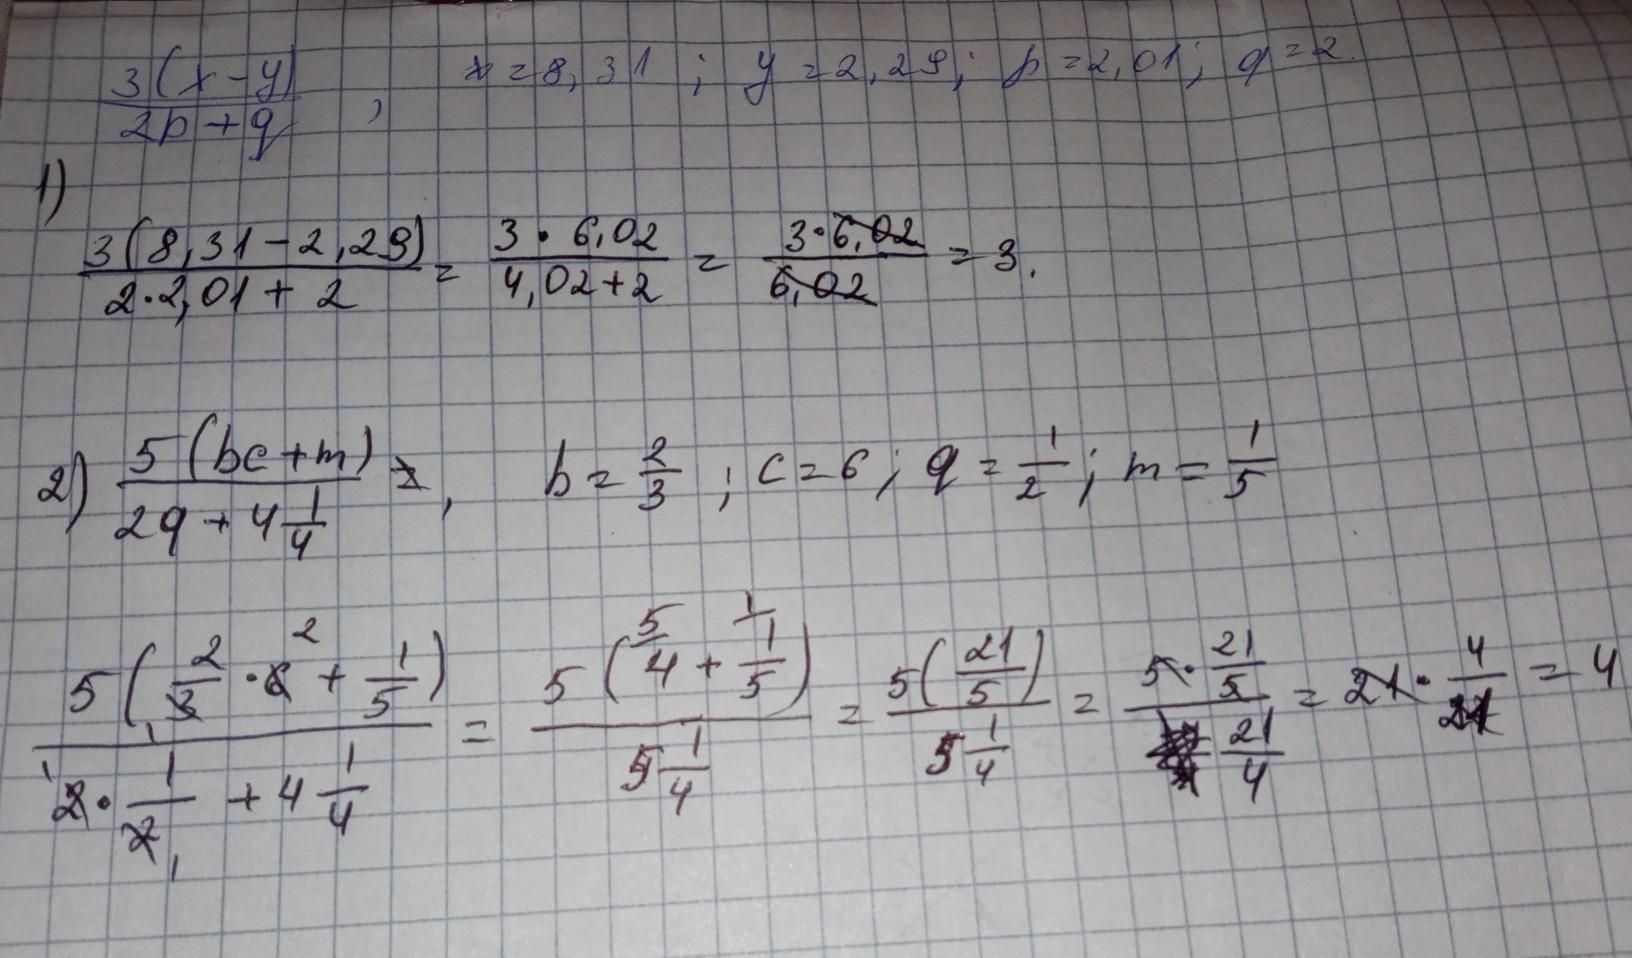 3(x-y)/2p+q , x=8,31 ; y=2,29; p=2,01; q=2.
1)
3(8,31-2,29)/2·2,01+2 = 3·6,02/4,02+2 = 3·6,02/6,02 = 3.
2) 5(bc+m)/2q+4 1/4 , b=2/3 ; c=6; q=1/2; m=1/5
5(2/3·6 2+1/5)/2·1/2+4 1/4 = 5(5/4+1/1/5)/5 1/4 = 5(21/5)/5 1/4 = 5·21/5/21/4 = 21·4/21 = 4